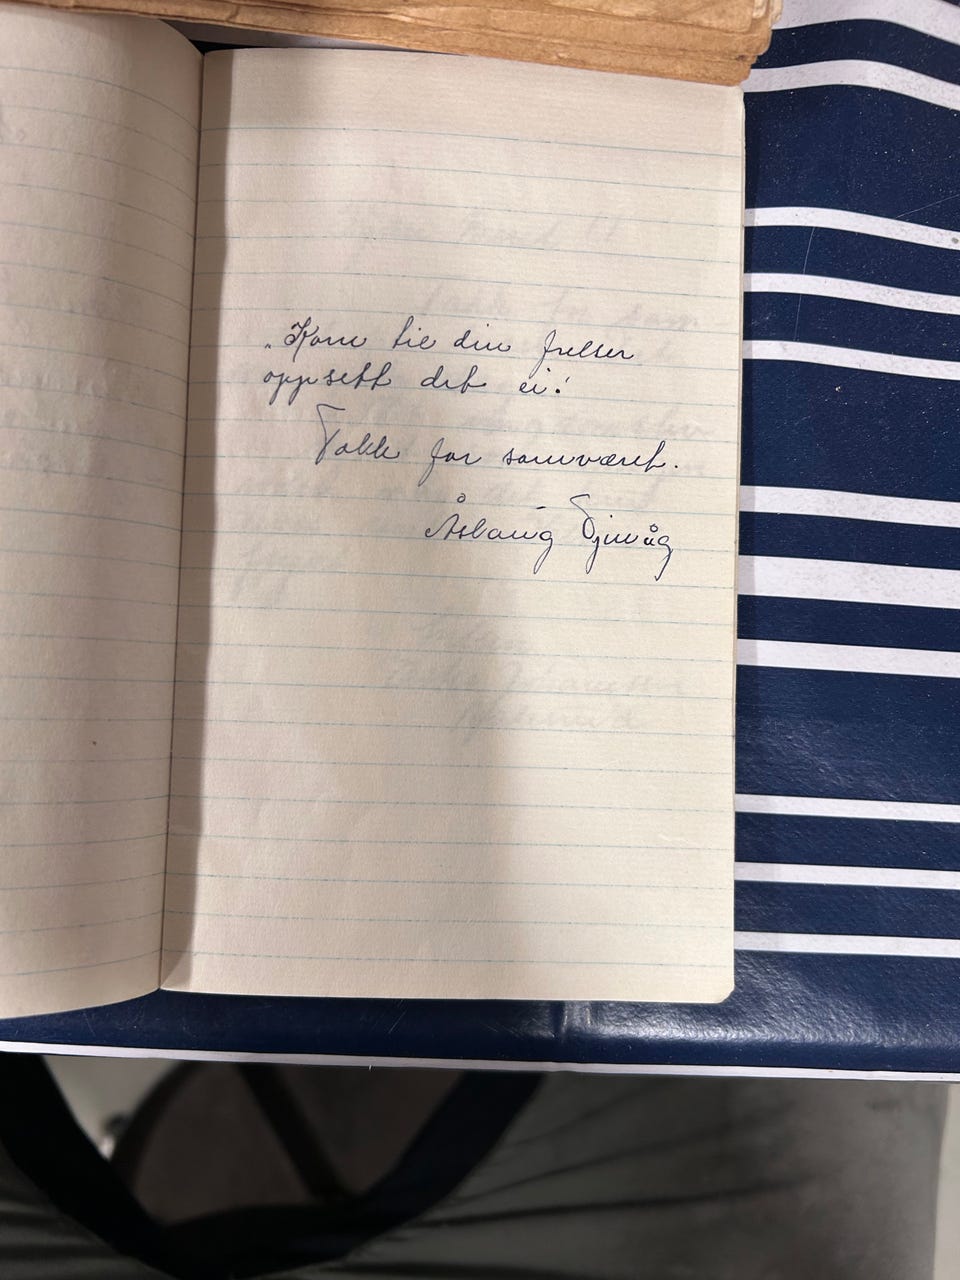 "Kom til din frelser
oppsett det ei!
Takk for samværet.
Åslaug Tjinvåg